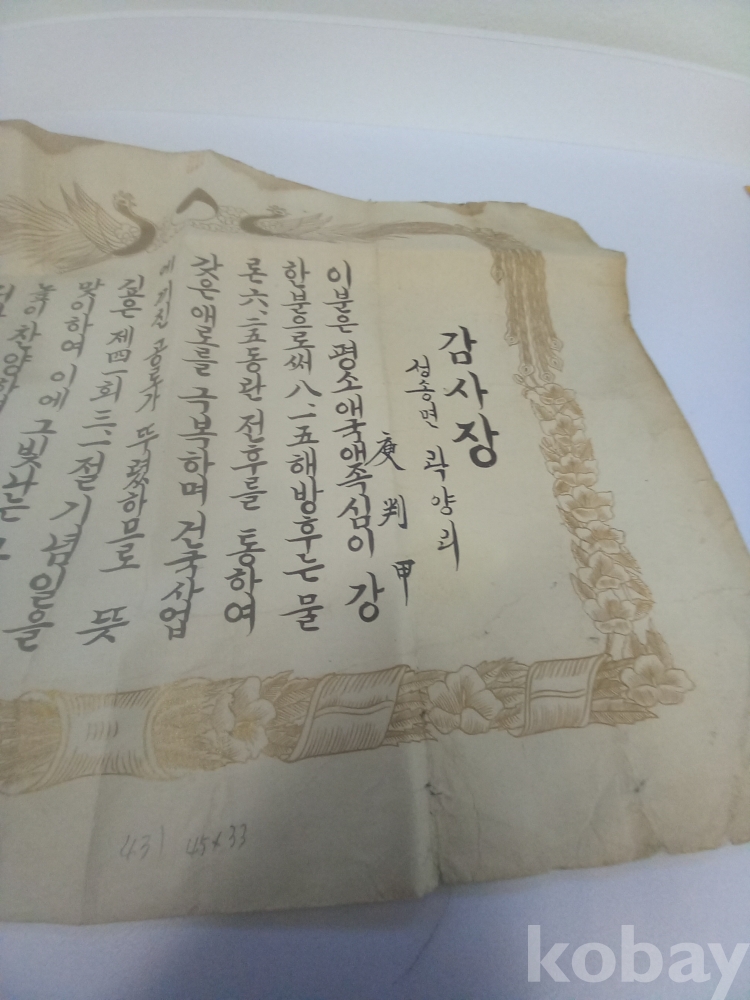 감사장
성송면 곽양리
庾判甲
이분은 평소애국애족심이 강
한분으로써 八.一五해방후는 물
론 六.二五동란 전후를 통하여
갖은애로를 극복하며 건국사업
에 끼친 공로가 뚜렸하므로
깊은 제四一회 三.一절 기념일을 뜻
맞이하여 이에 그빛나는
높이 찬양하
43) 45x33
kobay